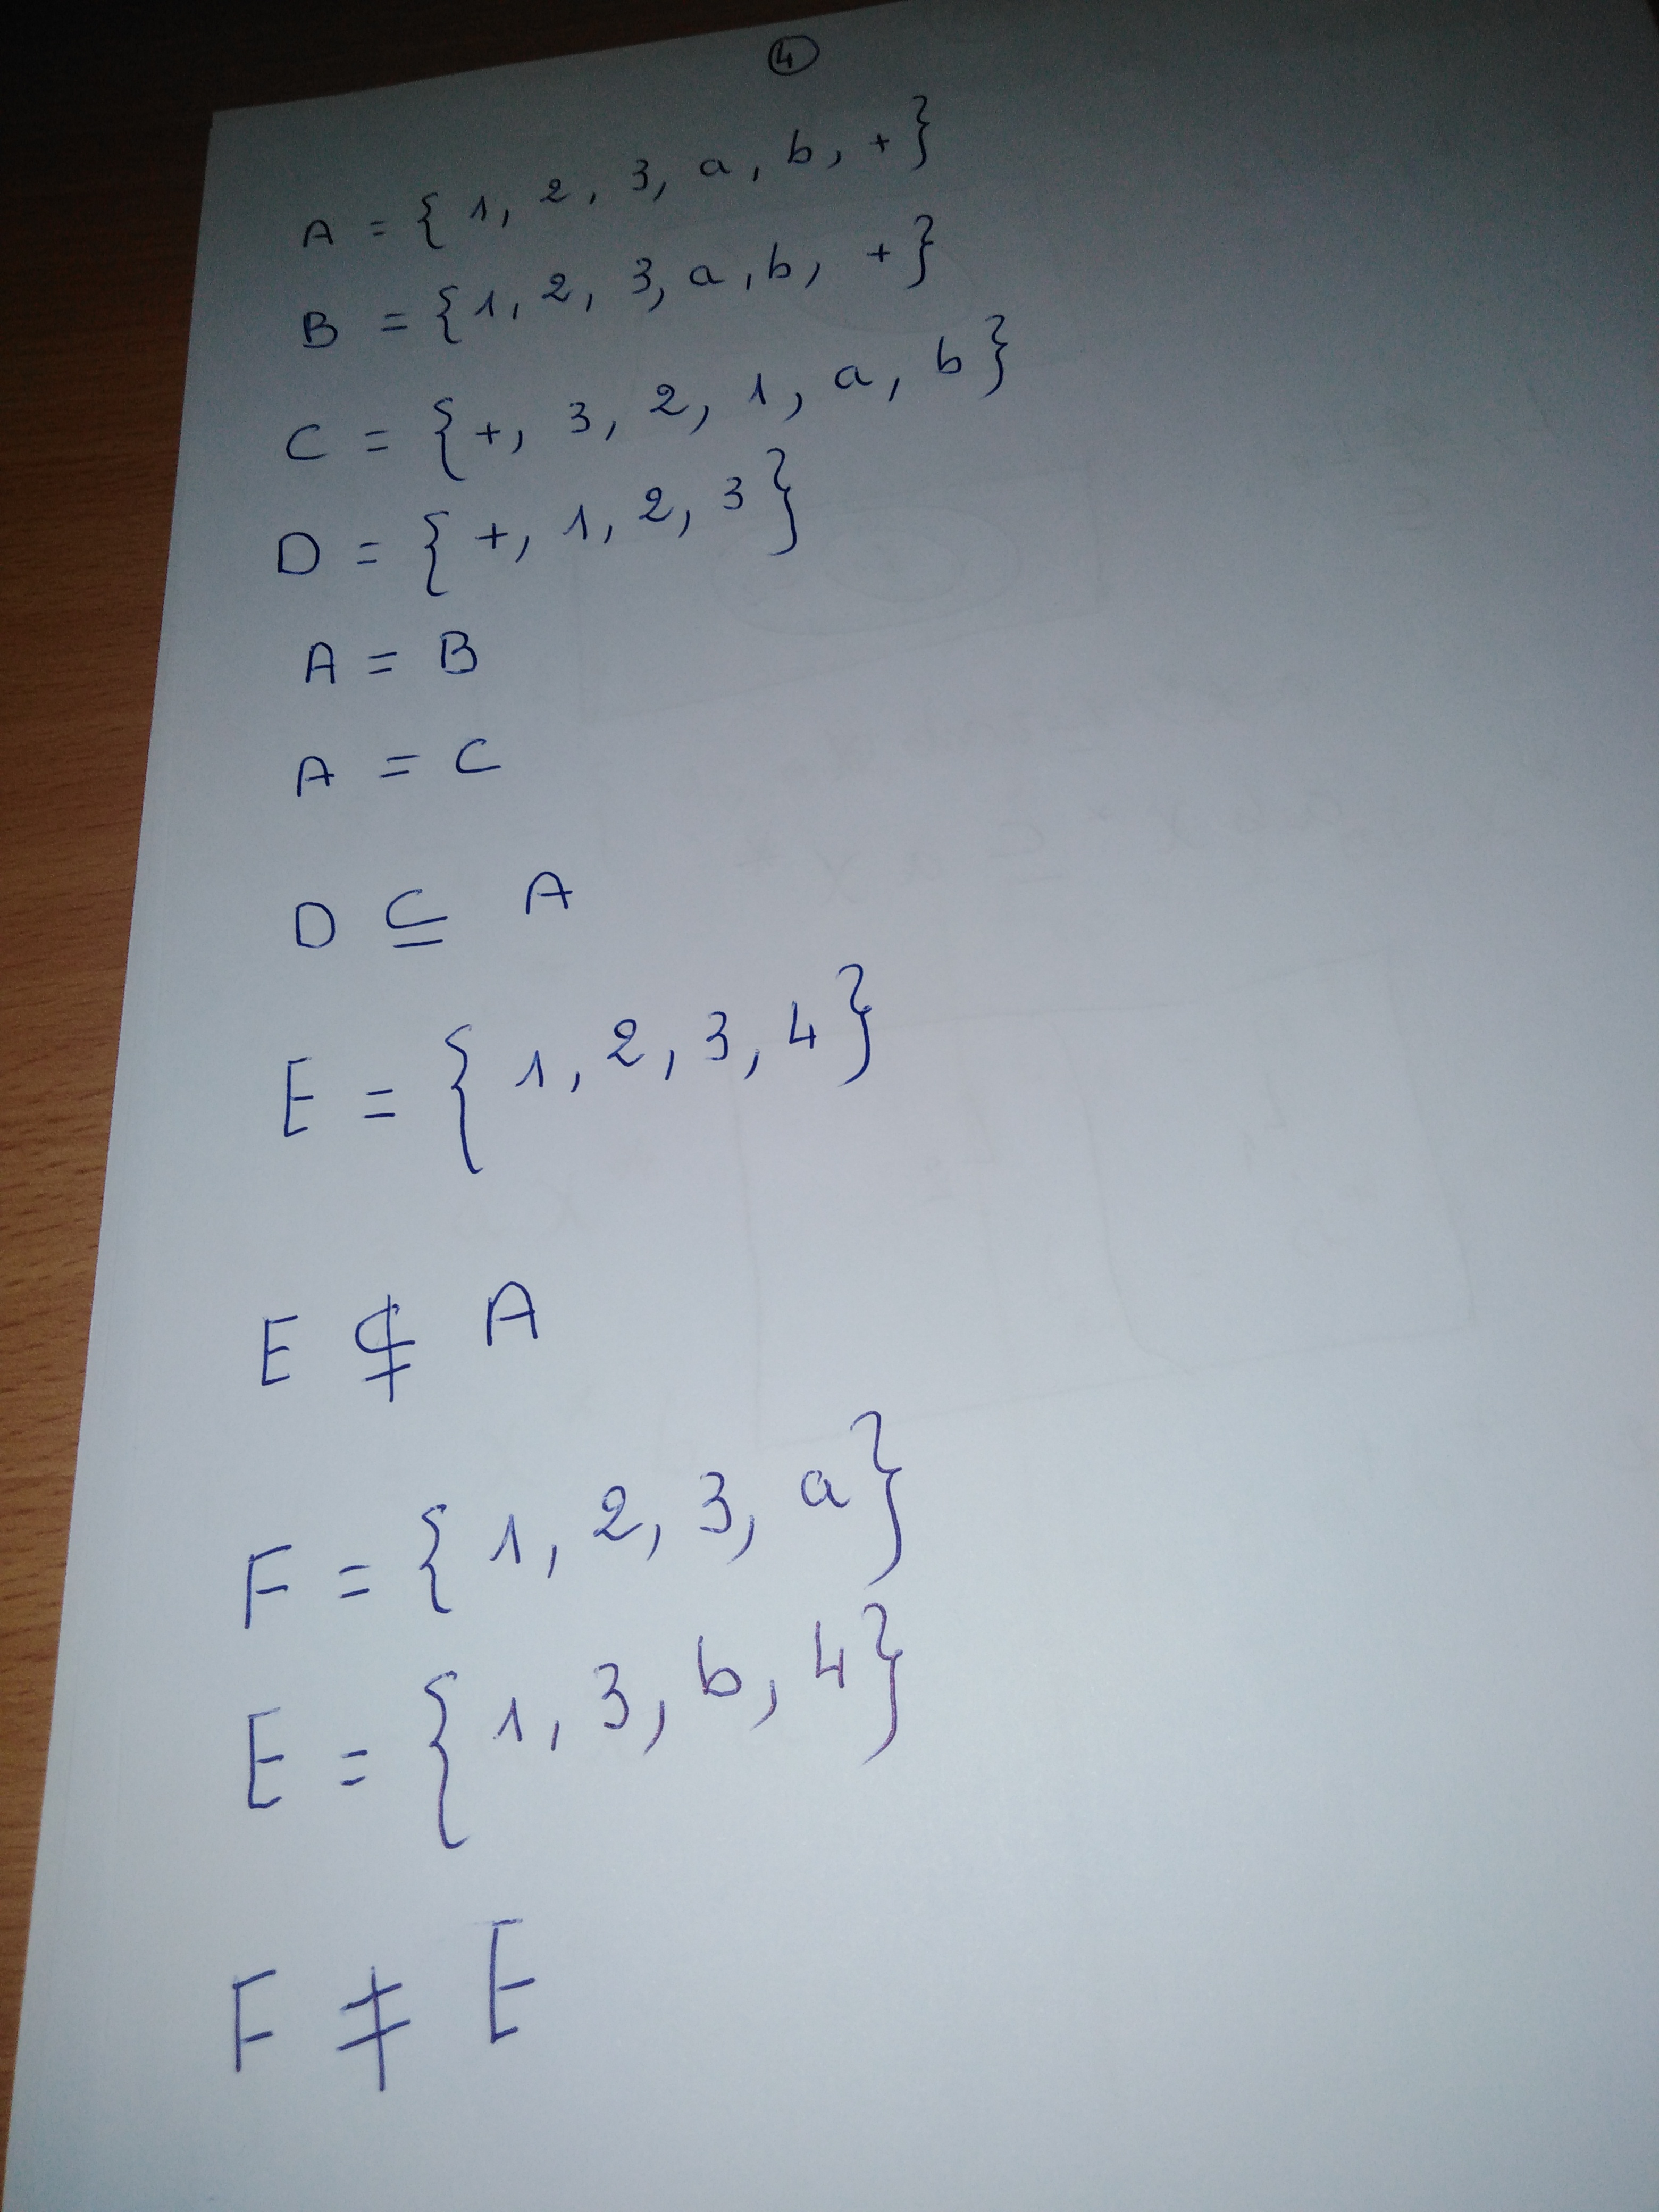 4
A = { 1, 2, 3, a, b, + }
B = { 1, 2, 3, a, b, + }
C = { +, 3, 2, 1, a, b }
D = { +, 1, 2, 3 }
A = B
A = C
D ⊆ A
E = { 1, 2, 3, 4 }
E ⊈ A
F = { 1, 2, 3, a }
E = { 1, 3, b, 4 }
F ≠ E